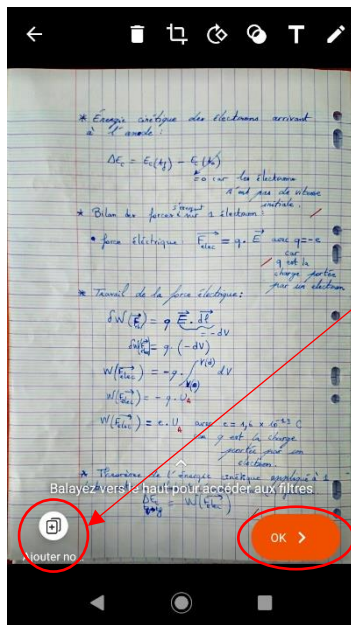 * Énergie cinétique des électrons arrivant
à l'anode :
ΔEc = Ec(tf) - Ec(t0)
= 0 car les électrons
n'ont pas de vitesse
initiale.
* Bilan des forces s'exerçant sur 1 électron :
• force électrique : Felec = q . E avec q = -e
car
q est la
charge portée
par un électron
* Travail de la force électrique :
δW(Felec) = q E . dl
= -dV
δW(Felec) = q . (-dV)
W(Felec) = -q . ∫ dV
W(Felec) = -q . U
W(Felec) = e . U avec e = 1,6 x 10⁻¹⁹ C
q est la charge
portée par un
électron.
* Théorème de l'énergie cinétique appliqué à 1
Balayez vers le haut pour accéder aux filtres
ΔEc = W(Felec)
Ajouter no
OK >